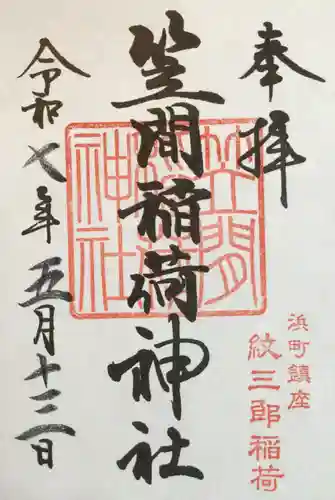 奉拝
浜町鎮座
紋三郎稲荷
笠間稲荷神社
笠間稲荷神社
令和七年五月十三日